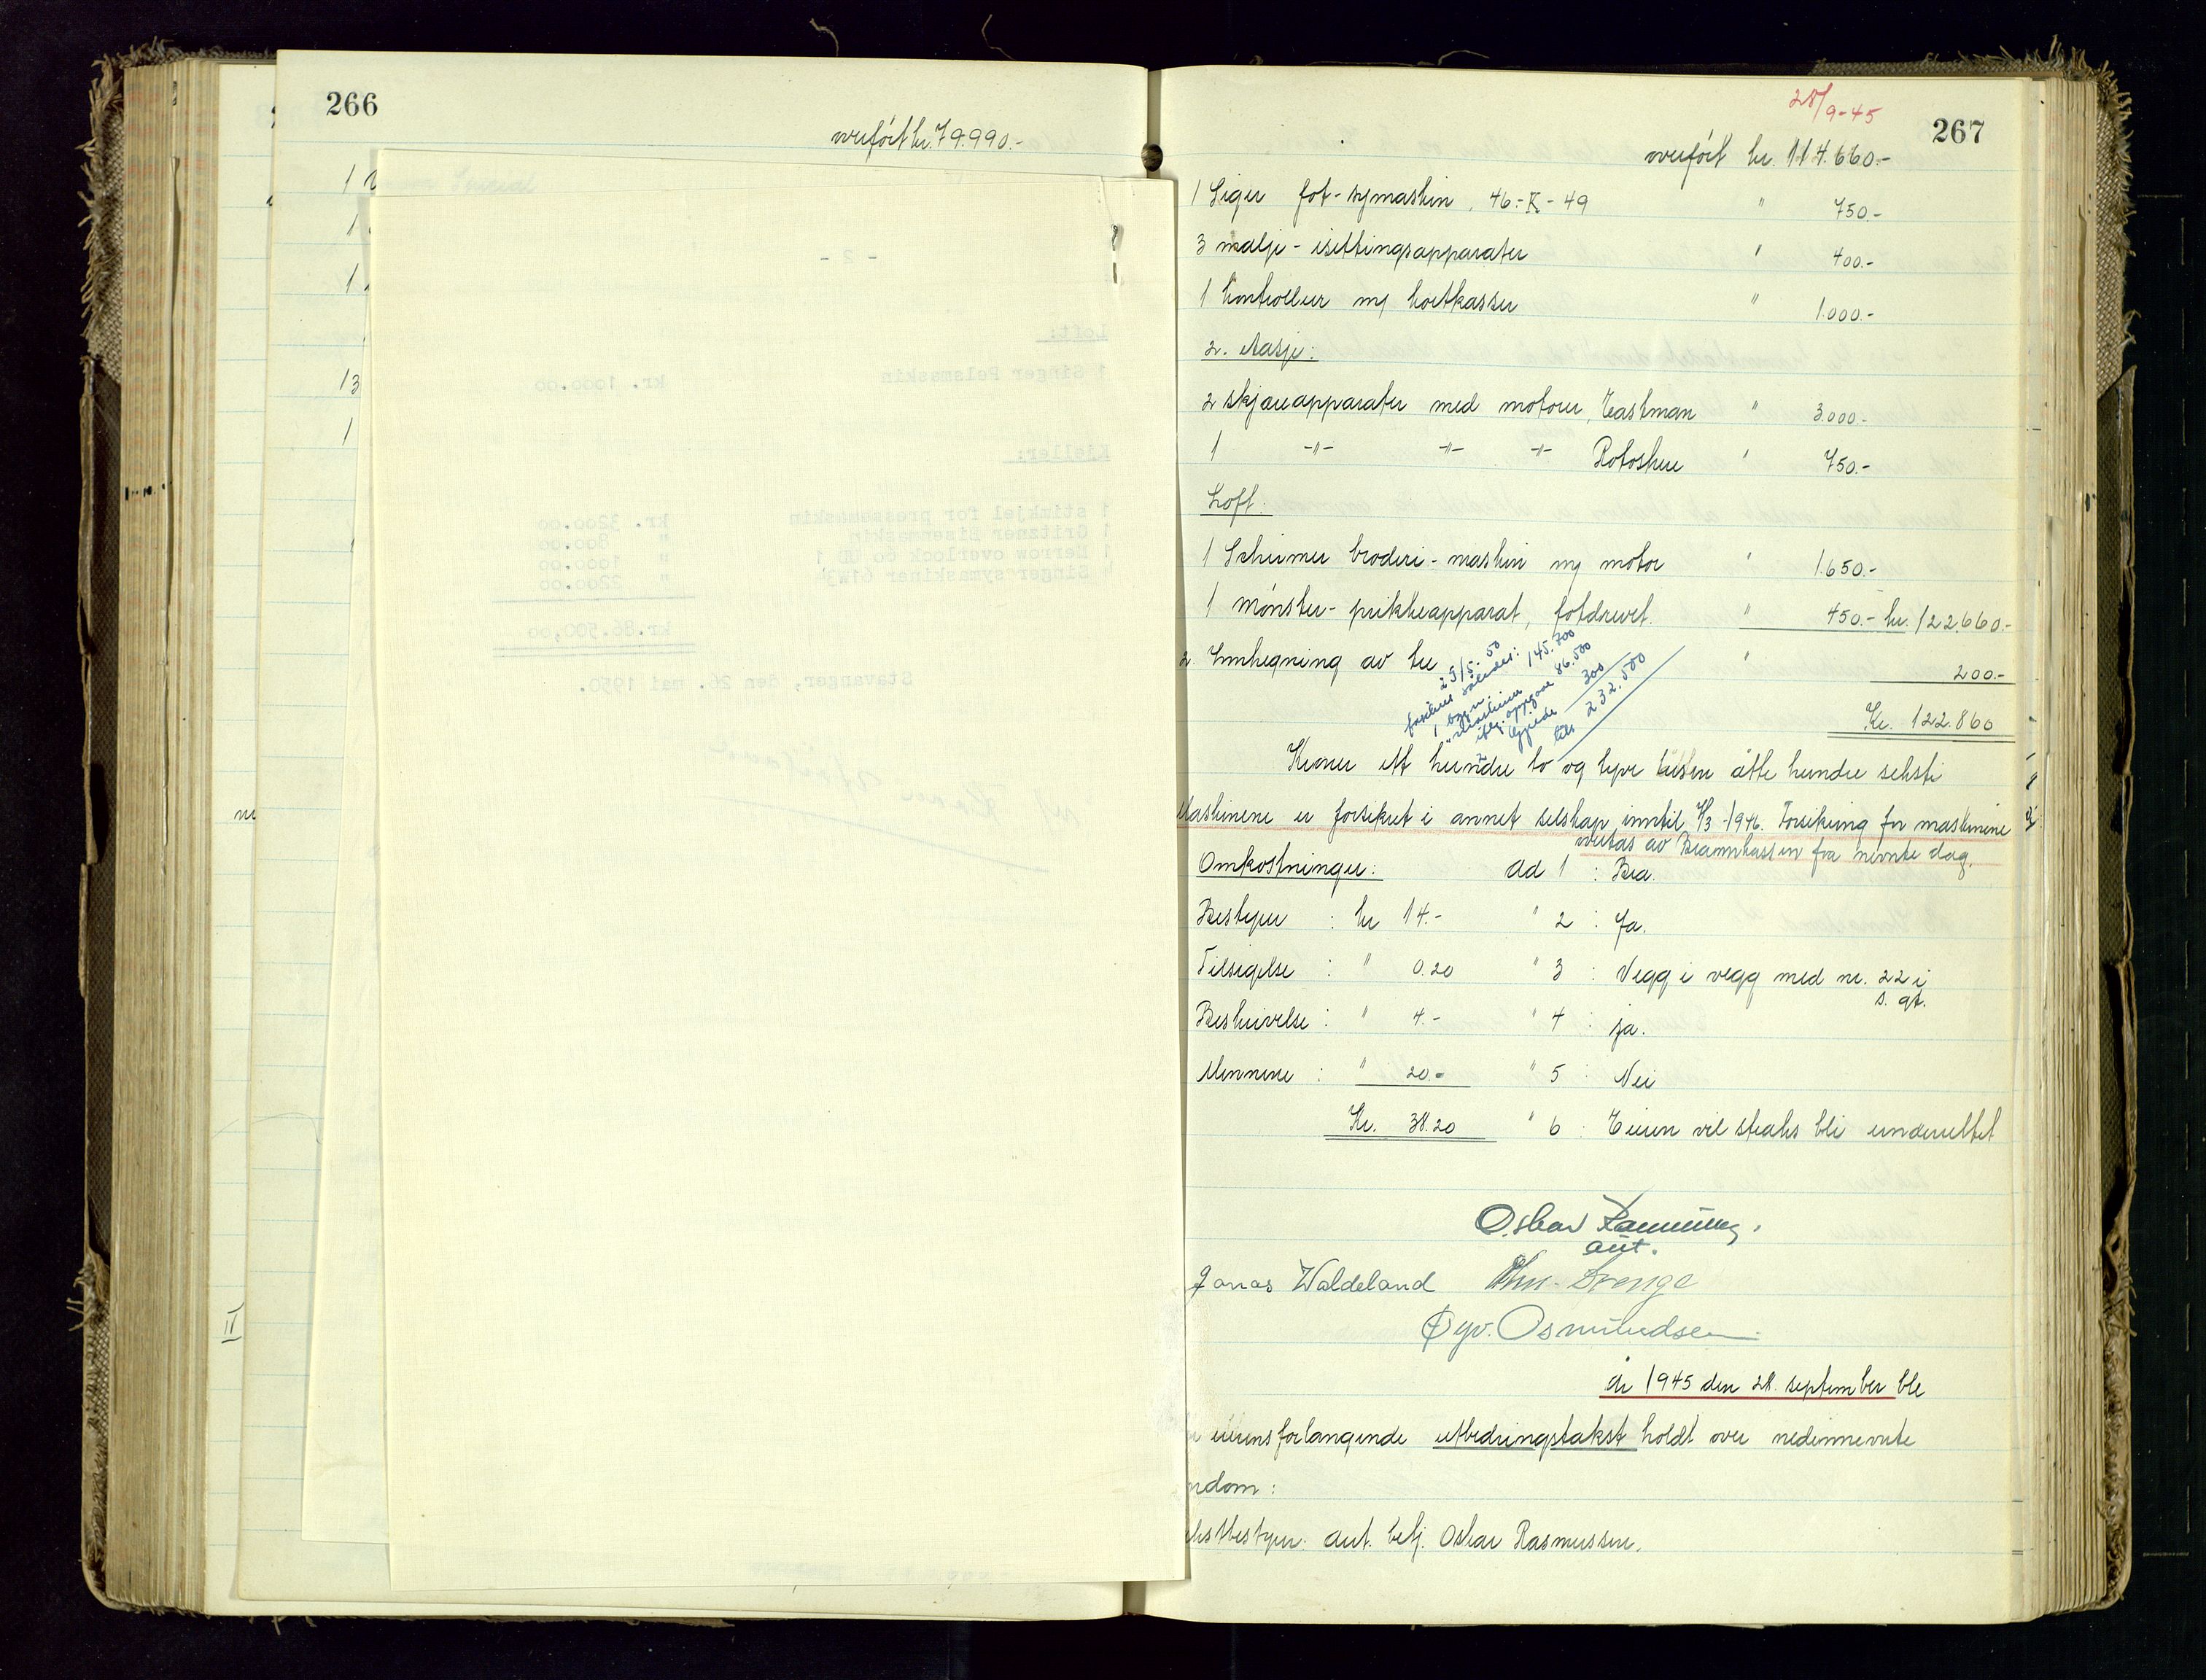 266
overført kr. 79.990.-
1
1
1
13
1
II
- 2 -
Loft:
1 Singer Pelsmaskin kr. 1000.00
Kjeller:
1 stimkjel for pressemaskin kr. 3200.00
1 Gritzner Lisenmaskin " 800.00
1 Merrow overlock 60 UD 1 " 1000.00
4 Singer symaskiner 61W3 " 2200.00
kr.86.500,00
Stavanger, den 26. mai 1950.
28/9-45
267
overført kr. 114.660.-
1 Siger fot-symaskin, 46-K-49 " 750.-
3 malje-isettingsapparater " 400.-
1 kontrollur m/ kortkasser " 1.000.-
2. etasje:
2 skjæreapparater med motorer, Eastman " 3.000.-
1 -"- -"- -"- Rotoshere " 750.-
Loft:
1 Schirmer broderi-maskin m/ motor " 1.650.-
1 mønster-prikkeapparat, fotdrevet. " 450.- kr. 122.660.-
2. Innhegning av tre " 200.-
25/5-50
forsikret således:
1, bygn. 145.700
" maskiner
iflg. oppgave 86.500
Gjerde 300
tils 232.500
Kr. 122.860
Kroner ett hundre to og tyve tusen åtte hundre seksti
Maskinene er forsikret i annet selskap inntil 1/3-1946. Forsikring for maskinene
overtas av Brannkassen fra nevnte dag.
Omkostninger: ad 1 : Bra.
Bestyrer : kr 14.- " 2 : Ja.
Tilsigelse : " 0.20 " 3 : Vegg i vegg med nr. 22 i
s. gt.
Beskrivelse : " 4.- " 4 : ja.
Mennene : " 20.- " 5 : Nei
Kr. 38.20 " 6 : Eieren vil straks bli underrettet
Oskar Rasmussen.
aut.
Jonas Waldeland Chr. Svenge
Øyv. Osmundsen
År 1945 den 28. september ble
eierens forlangende utbedringstakst holdt over nedennevnte
ndom:
kstbestyrer: aut. betj. Oskar Rasmussen.